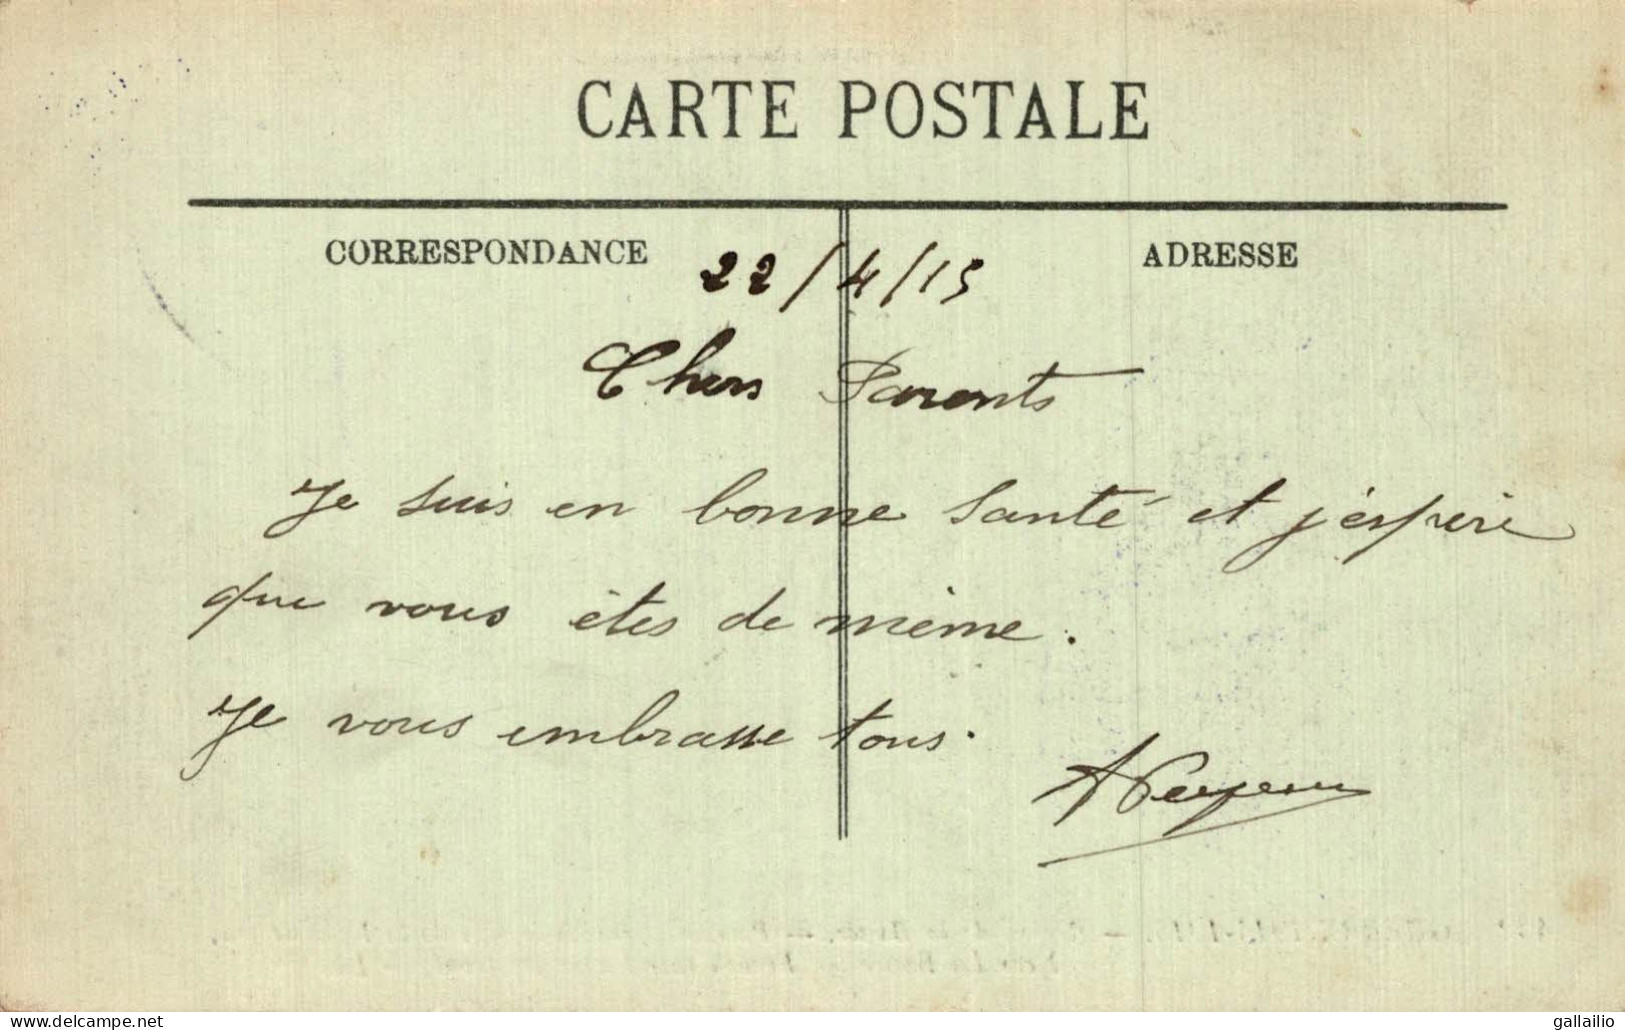 CARTE POSTALE
CORRESPONDANCE
ADRESSE
22/4/15
Chers Parents
Je suis en bonne santé et j'éspère
que vous êtes de même.
Je vous embrasse tous.
www.delcampe.net
gallailio